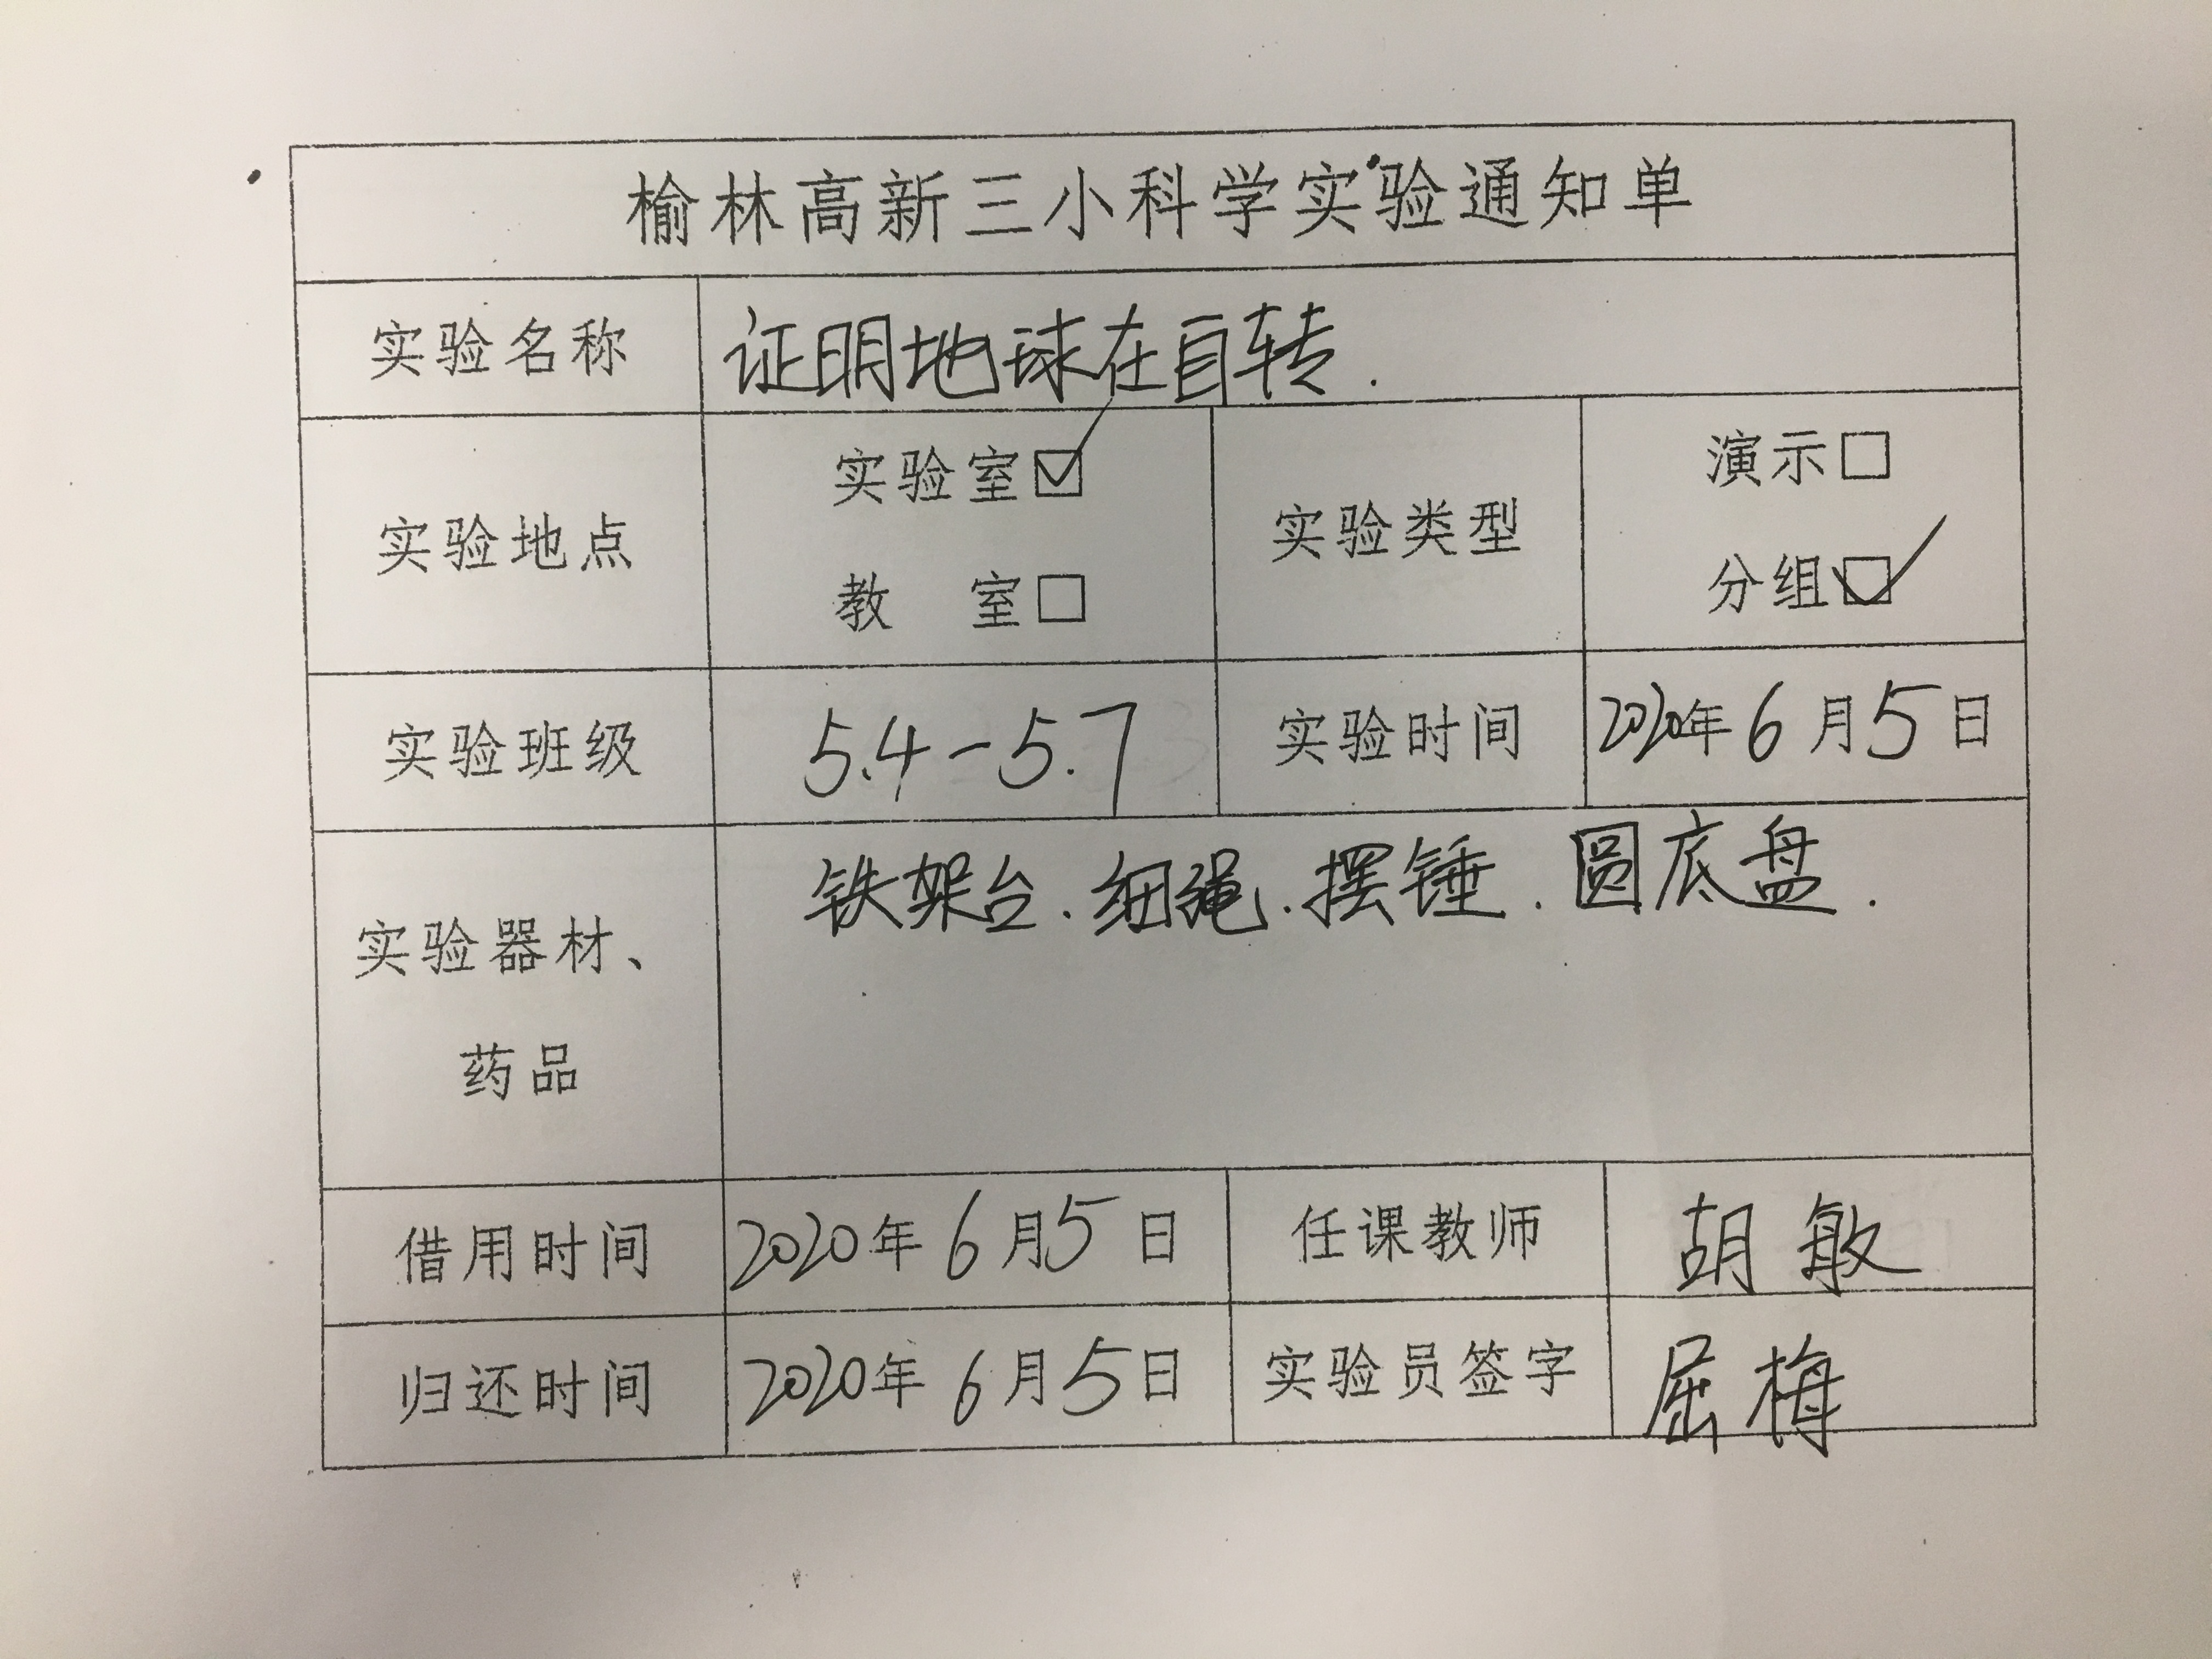 榆林高新三小科学实验通知单
实验名称 证明地球在自转.
实验地点 实验室☑ 教 室□ 实验类型 演示□ 分组☑
实验班级 5.4-5.7 实验时间 2020年6月5日
实验器材、药品 铁架台.细绳.摆锤.圆底盘.
借用时间 2020年6月5日 任课教师 胡敏
归还时间 2020年6月5日 实验员签字 屈梅